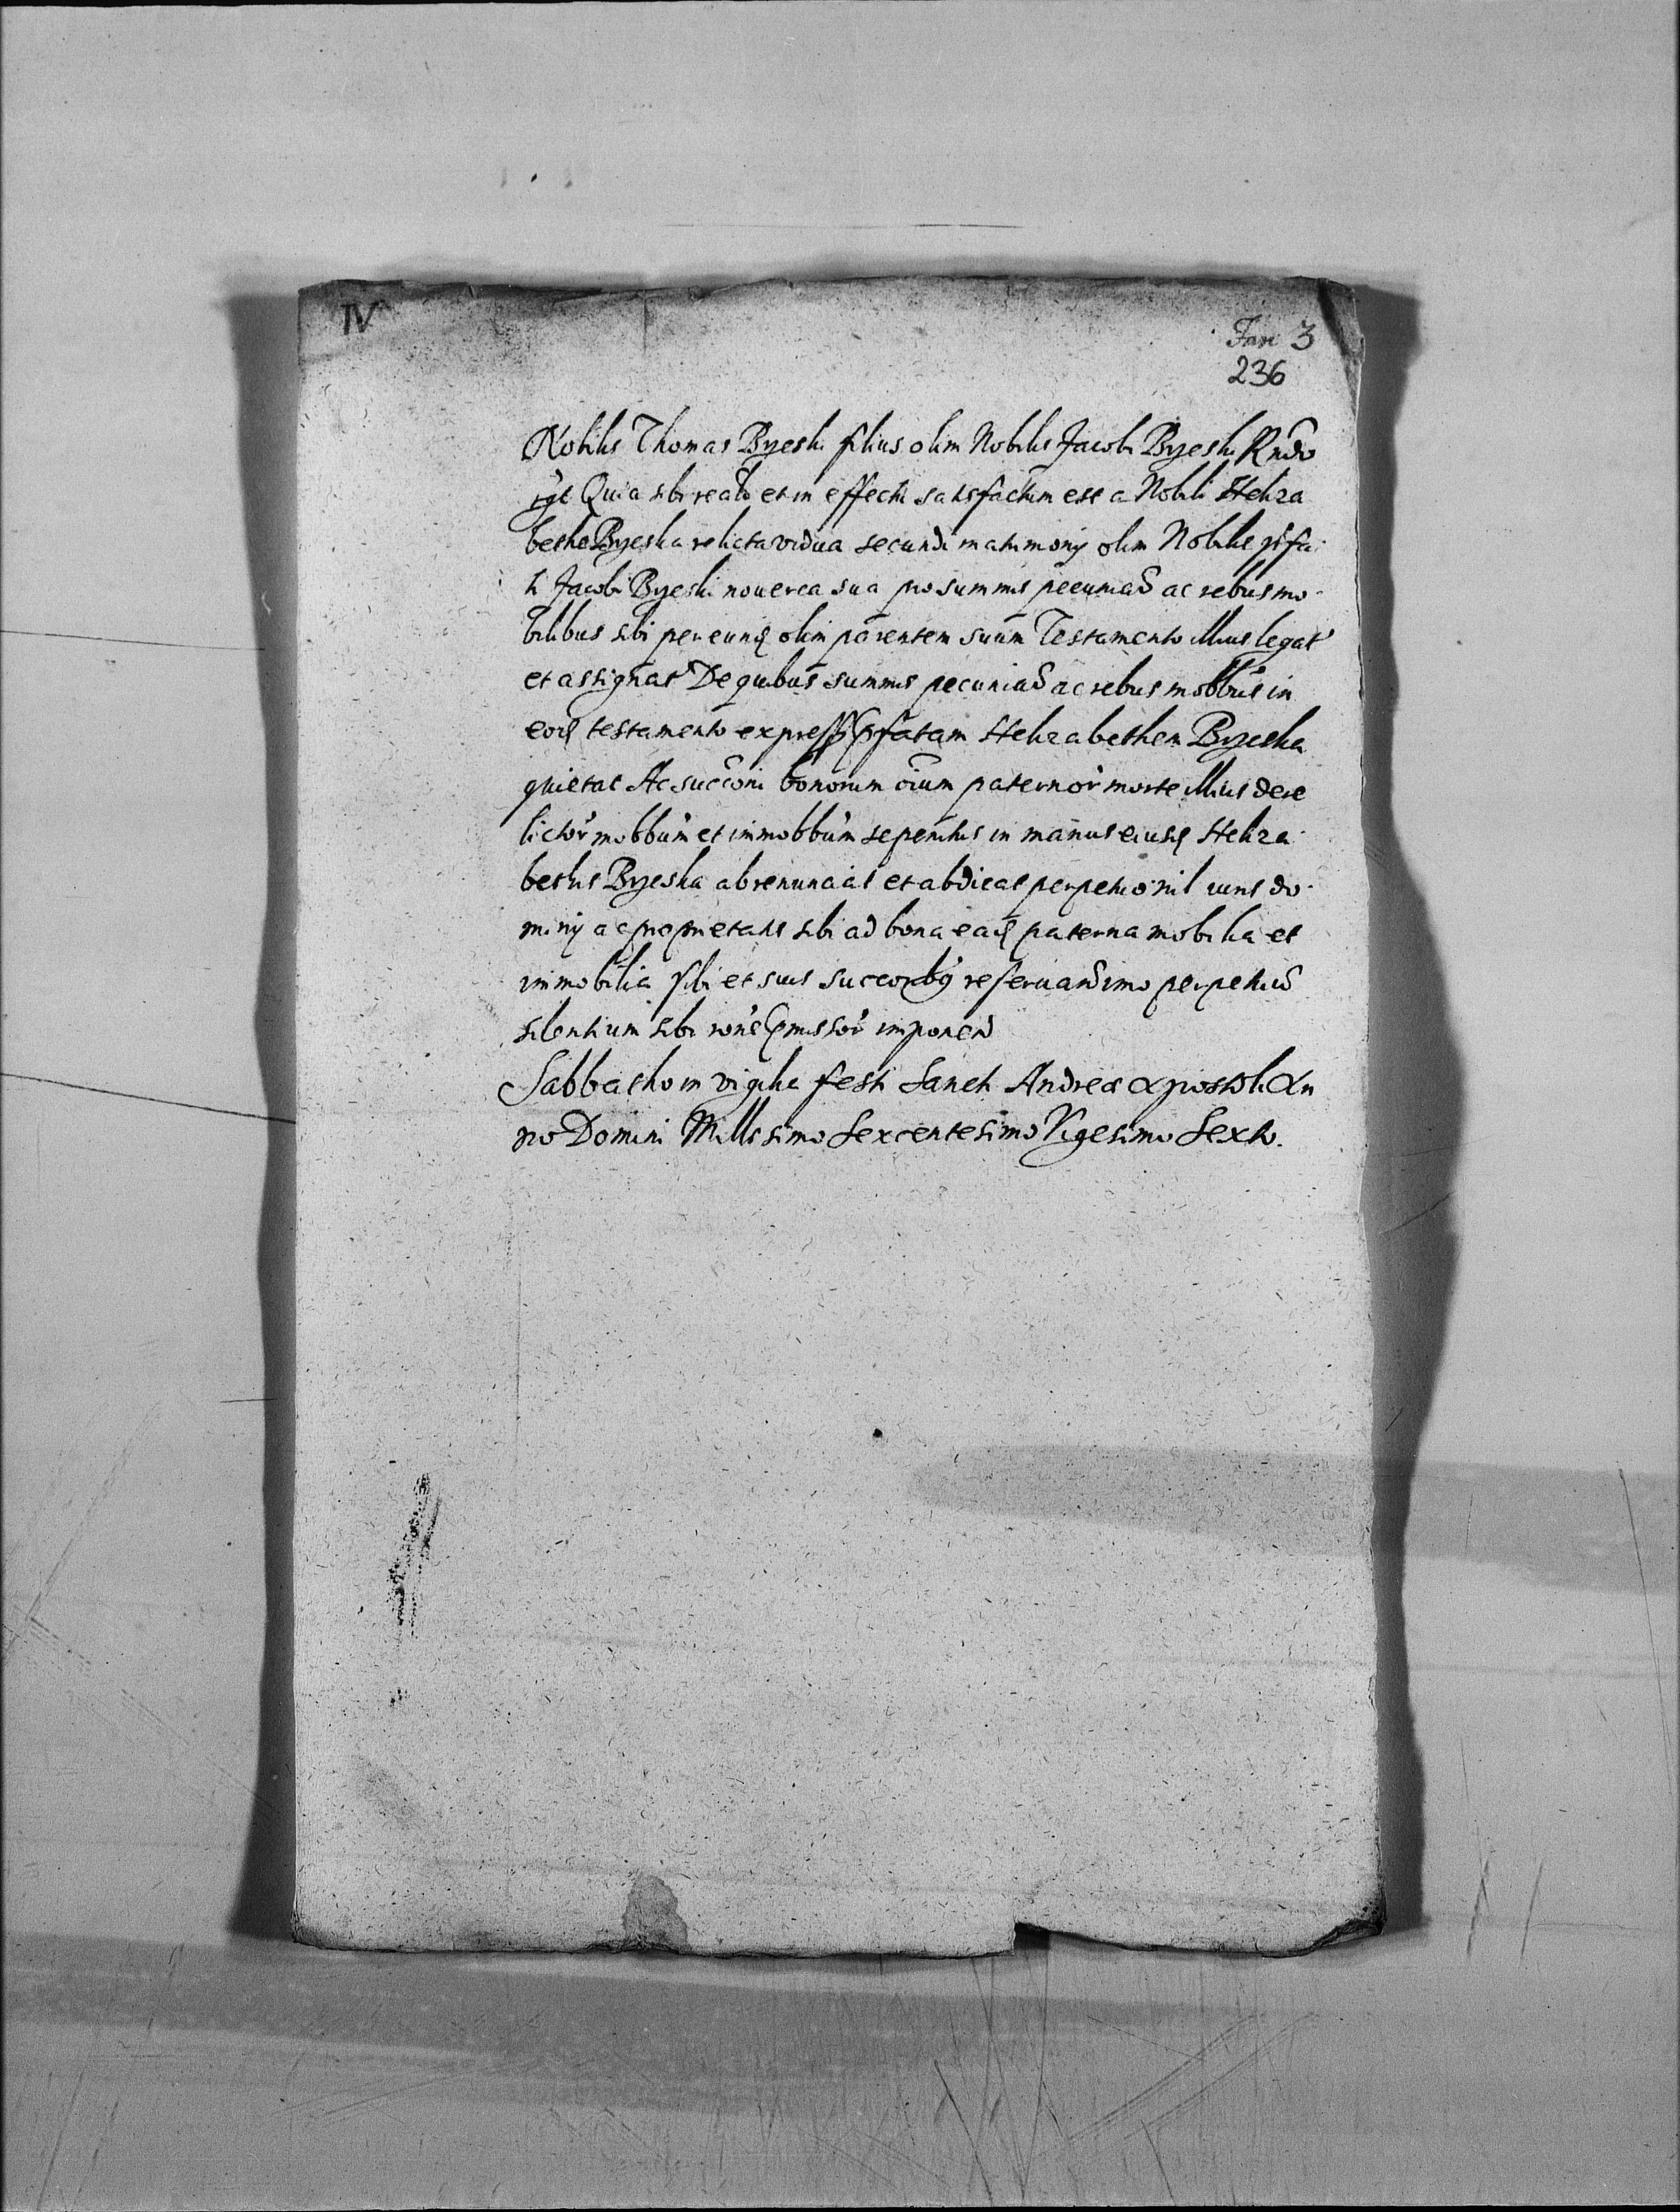 IV
Fasc 3
236
Nobilis Thomas Byeski filius olim Nobilis Jacobi Byeski Rndo
ryt Quia sibi realr et in effectu satisfactum est a Nobili Heliza
betha Byeska relicta vidua secundi matrimonij olim Nobilis prfa
ti Jacobi Byeski nouerca sua pro summis pecuniar ac rebus mo
bilibus sibi per eundq olim parentem suum Testamento illius legat
et assignat De quibus summis pecuniar ac rebus mobbus in
eodq testamento express pfatam Helizabetham Byeska
quietat Ac succoni bonorum oium paternor morte illius dere
lictor mobbum et immobbum se penitus in manus eiusdq Heliza
bethis Byeska abrenunciat et abdicat perpetuo nil iuris do
minij ac proprietatis sibi ad bona eadq paterna mobilia et
immobilia sibi et suis succorbq reseruand imo perpetuu
silentium sibi rone pmissor imponen
Sabbatho in vigilia festi Sancti Andreæ Apostoli An
no Domini Millssimo Sexcentesimo Vigesimo Sexto.